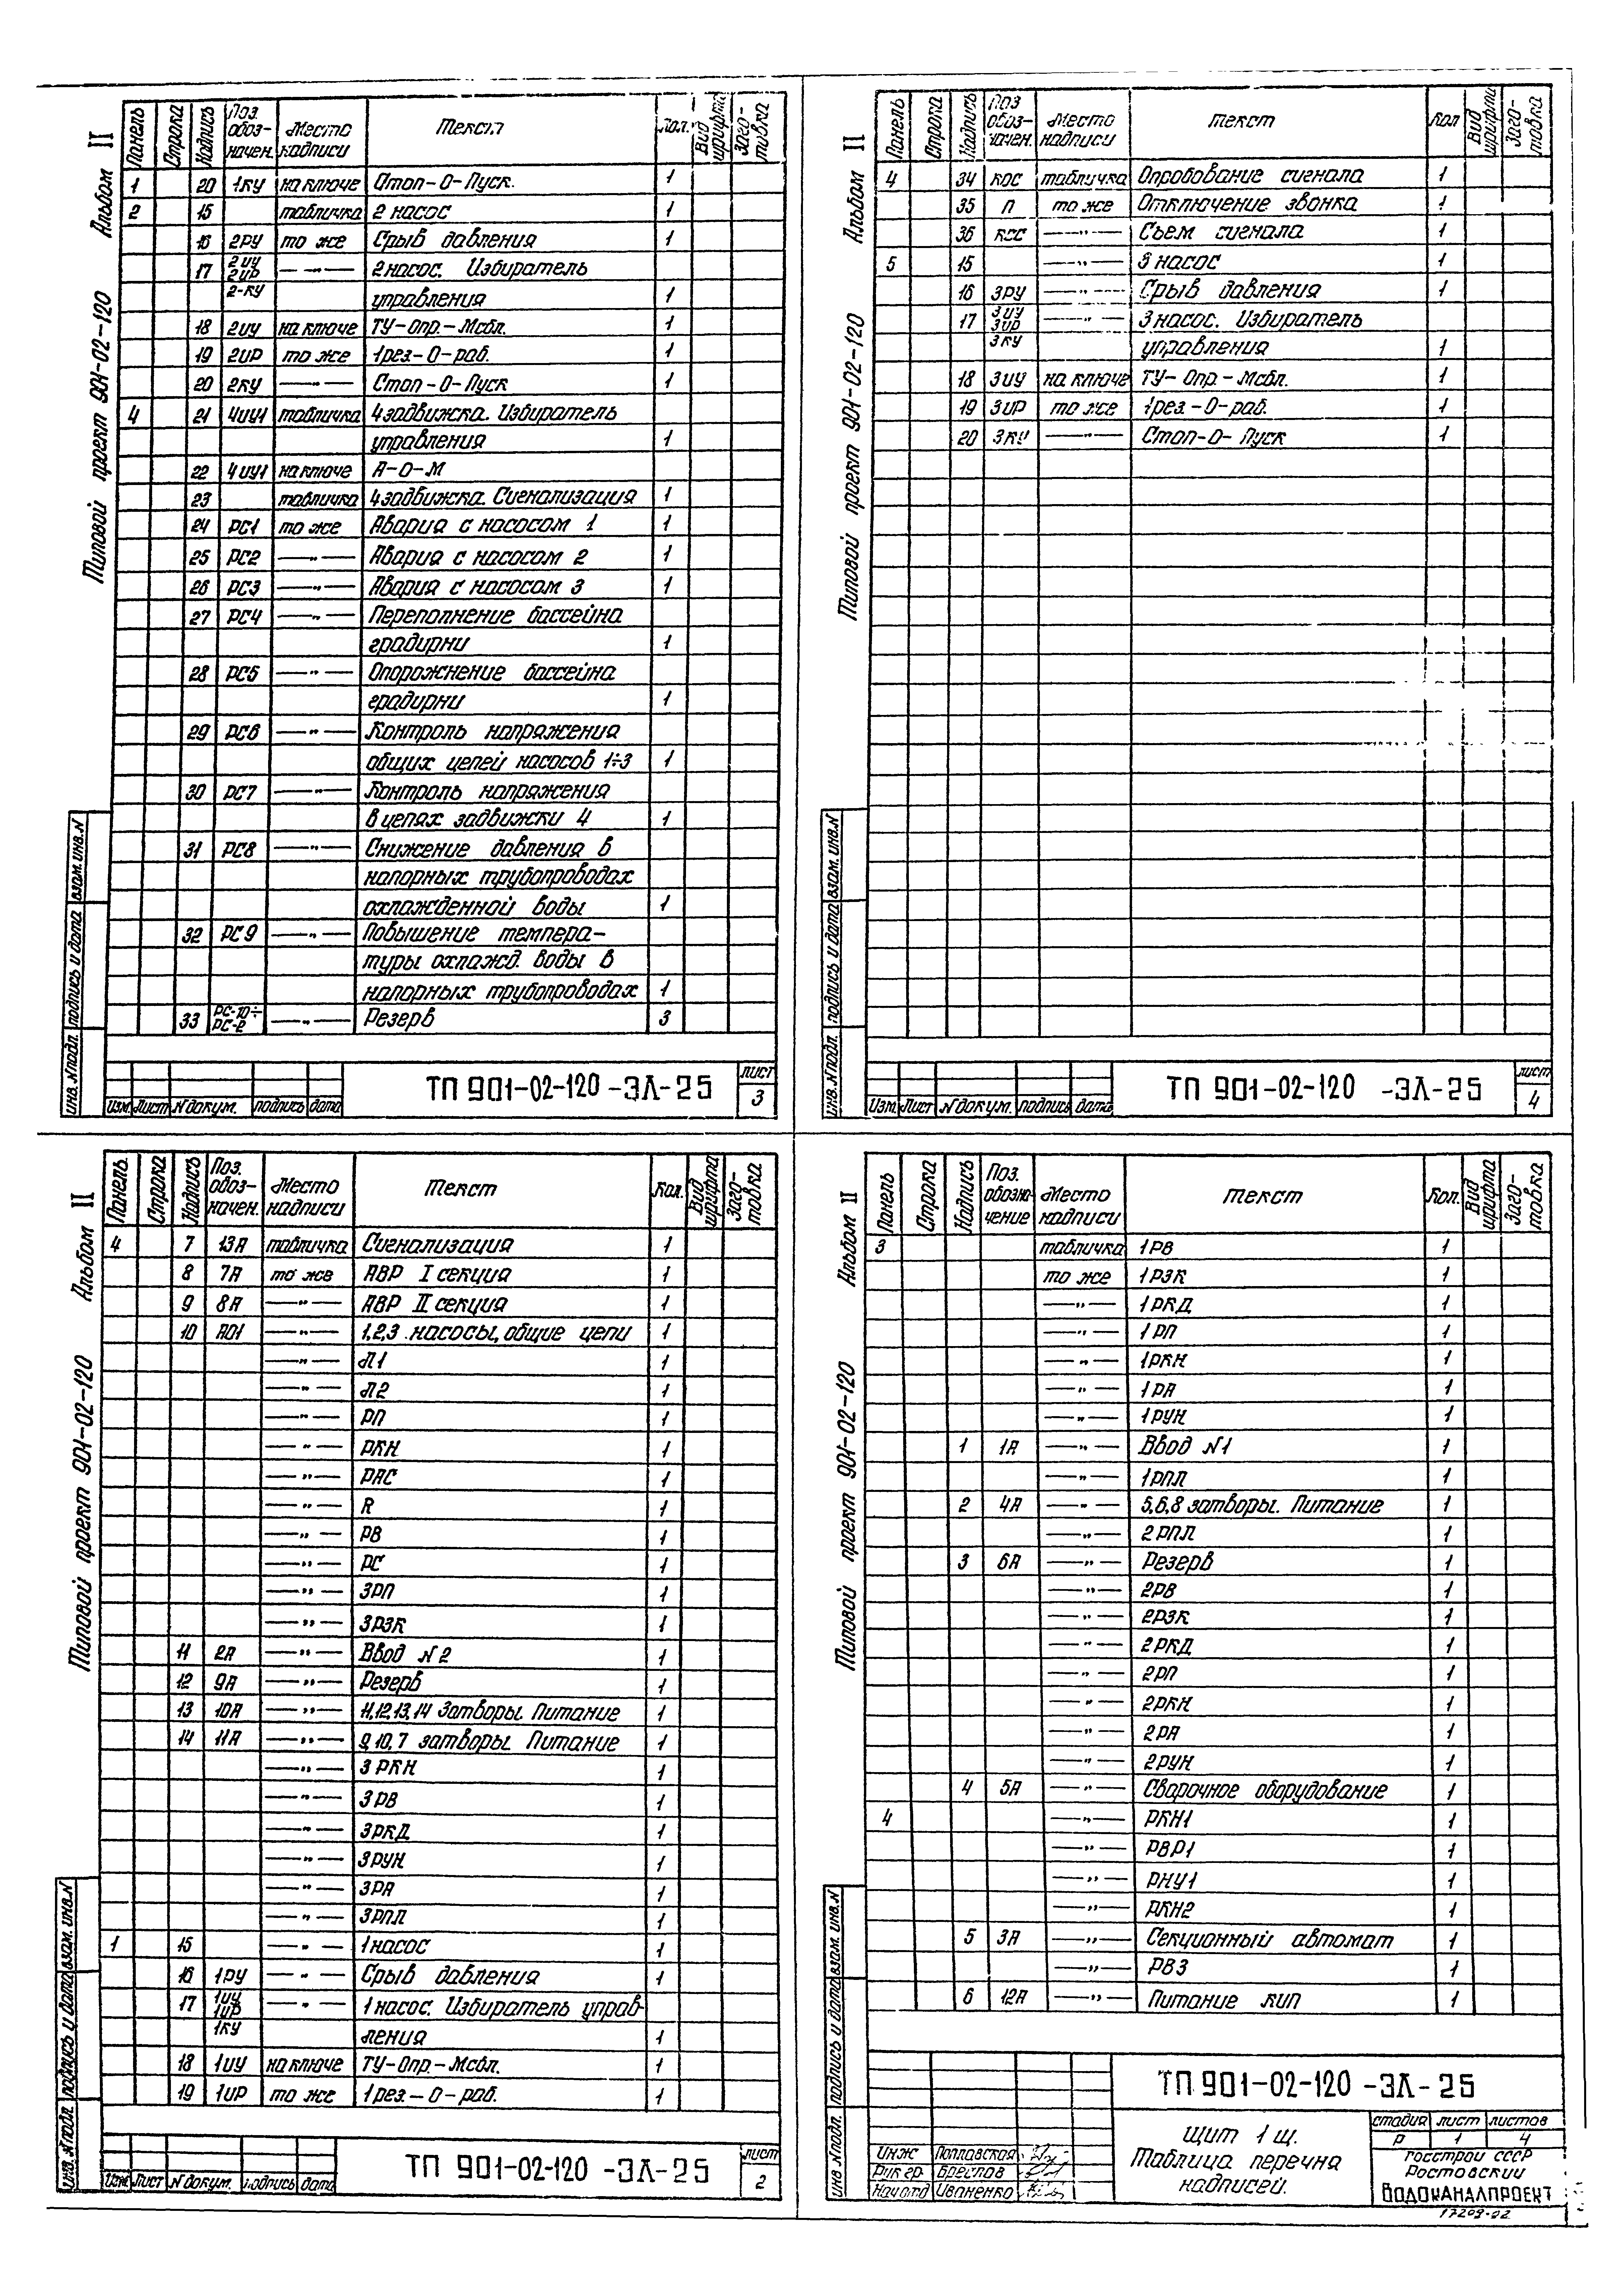 Типовой проект 901-02-120 Альбом II
Панель Строка Надпись Поз. обоз-начен. Место надписи Текст Кол. Вид шрифта Заго-товка
1 20 1КУ на ключе Стоп-О-Пуск. 1
2 15 табличка 2 насос 1
16 2РУ то же Срыв давления 1
17 2ИУ 2ИР —"— 2 насос. Избиратель
2-КУ управления 1
18 2ИУ на ключе ТУ-Опр-Мсбл. 1
19 2ИР то же 1рез-О-раб. 1
20 2КУ —"— Стоп-О-Пуск 1
4 21 4ИУ1 табличка 4 задвижка. Избиратель
управления 1
22 4ИУ1 на ключе А-О-М
23 табличка 4 задвижка. Сигнализация 1
24 РС1 то же Авария с насосом 1 1
25 РС2 —"— Авария с насосом 2 1
26 РС3 —"— Авария с насосом 3 1
27 РС4 —"— Переполнение бассейна
градирни 1
28 РС5 —"— Опорожнение бассейна
градирни 1
29 РС6 —"— Контроль напряжения
общих цепей насосов 1÷3 1
30 РС7 —"— Контроль напряжения
в цепях задвижки 4 1
31 РС8 —"— Снижение давления в
напорных трубопроводах
охлажденной воды 1
32 РС9 —"— Повышение темпера-
туры охлажд. воды в
напорных трубопроводах 1
33 РС-10÷ —"— Резерв 3
Инв. N подл. Подпись и дата Взам. инв. N
Изм. Лист N докум. Подпись Дата
ТП 901-02-120-ЭЛ-25
Лист 3
Типовой проект 901-02-120 Альбом II
Панель Строка Надпись Поз обоз-начен. Место надписи Текст Кол Вид шрифта Заго-товка
4 34 КОС табличка Опробование сигнала 1
35 П то же Отключение звонка 1
36 КСС —"— Съем сигнала 1
5 15 —"— 3 насос 1
16 3РУ —"— Срыв давления 1
17 3ИУ 3ИР —"— 3 насос. Избиратель
3КУ управления 1
18 3ИУ на ключе ТУ-Опр-Мсбл. 1
19 3ИР то же 1рез.-О-раб. 1
20 3КУ —"— Стоп-О-Пуск 1
Инв. N подл. Подпись и дата Взам. инв. N
Изм. Лист N докум. Подпись Дата
ТП 901-02-120 -ЭЛ-25
Лист 4
Типовой проект 901-02-120 Альбом II
Панель. Строка Надпись Поз. обоз-начен. Место надписи Текст Кол. Вид шрифта Заго-товка
4 7 13А табличка Сигнализация 1
8 7А то же АВР I секция 1
9 8А —"— АВР II секция 1
10 А01 —"— 1,2,3 насосы, общие цепи 1
—"— Л1 1
—"— Л2 1
—"— РП 1
—"— РКН 1
—"— РАС 1
—"— R 1
—"— РВ 1
—"— РС 1
—"— 3РП 1
—"— 3РЗК 1
11 2А —"— Ввод N2 1
12 9А —"— Резерв 1
13 10А —"— 11,12,13,14 Затворы. Питание 1
14 11А —"— 9,10,7 затворы Питание 1
—"— 3РКН 1
—"— 3РВ 1
—"— 3РКД 1
—"— 3РУН 1
—"— 3РА 1
—"— 3РПЛ 1
1 15 —"— 1 насос 1
16 1РУ —"— Срыв давления 1
17 1ИУ 1ИР —"— 1 насос. Избиратель управ-
1КУ ления 1
18 1ИУ на ключе ТУ-Опр.-Мсбл. 1
19 1ИР то же 1рез-О-раб. 1
Инв. N подл. Подпись и дата Взам. инв. N
Изм. Лист N докум. Подпись Дата
ТП 901-02-120 -ЭЛ-25
Лист 2
Типовой проект 901-02-120 Альбом II
Панель Строка Надпись Поз. обозна-чение Место надписи Текст Кол. Вид шрифта Заго-товка
3 табличка 1РВ 1
то же 1РЗК 1
—"— 1РКД 1
—"— 1РП 1
—"— 1РКН 1
—"— 1РА 1
—"— 1РУН 1
1 1А —"— Ввод N1 1
—"— 1РПЛ 1
2 4А —"— 5,6,8 затворы. Питание 1
—"— 2РПЛ 1
3 6А —"— Резерв 1
—"— 2РВ 1
—"— 2РЗК 1
—"— 2РКД 1
—"— 2РП 1
—"— 2РКН 1
—"— 2РА 1
—"— 2РУН 1
4 5А —"— Сварочное оборудование 1
4 —"— РКН1 1
—"— РВР1 1
—"— РНУ1 1
—"— РКН2 1
5 3А —"— Секционный автомат 1
—"— РВ3 1
6 12А —"— Питание КИП 1
Инв. N подл. Подпись и дата Взам. инв. N
ТП 901-02-120 -ЭЛ-25
Инж Полловская
Рук гр. Бреслав
Нач отд Иваненко
Щит 1 щ.
Таблица перечня
надписей.
Стадия Лист Листов
Р 1 4
Госстрой СССР
Ростовский
Водоканалпроект
17209-02